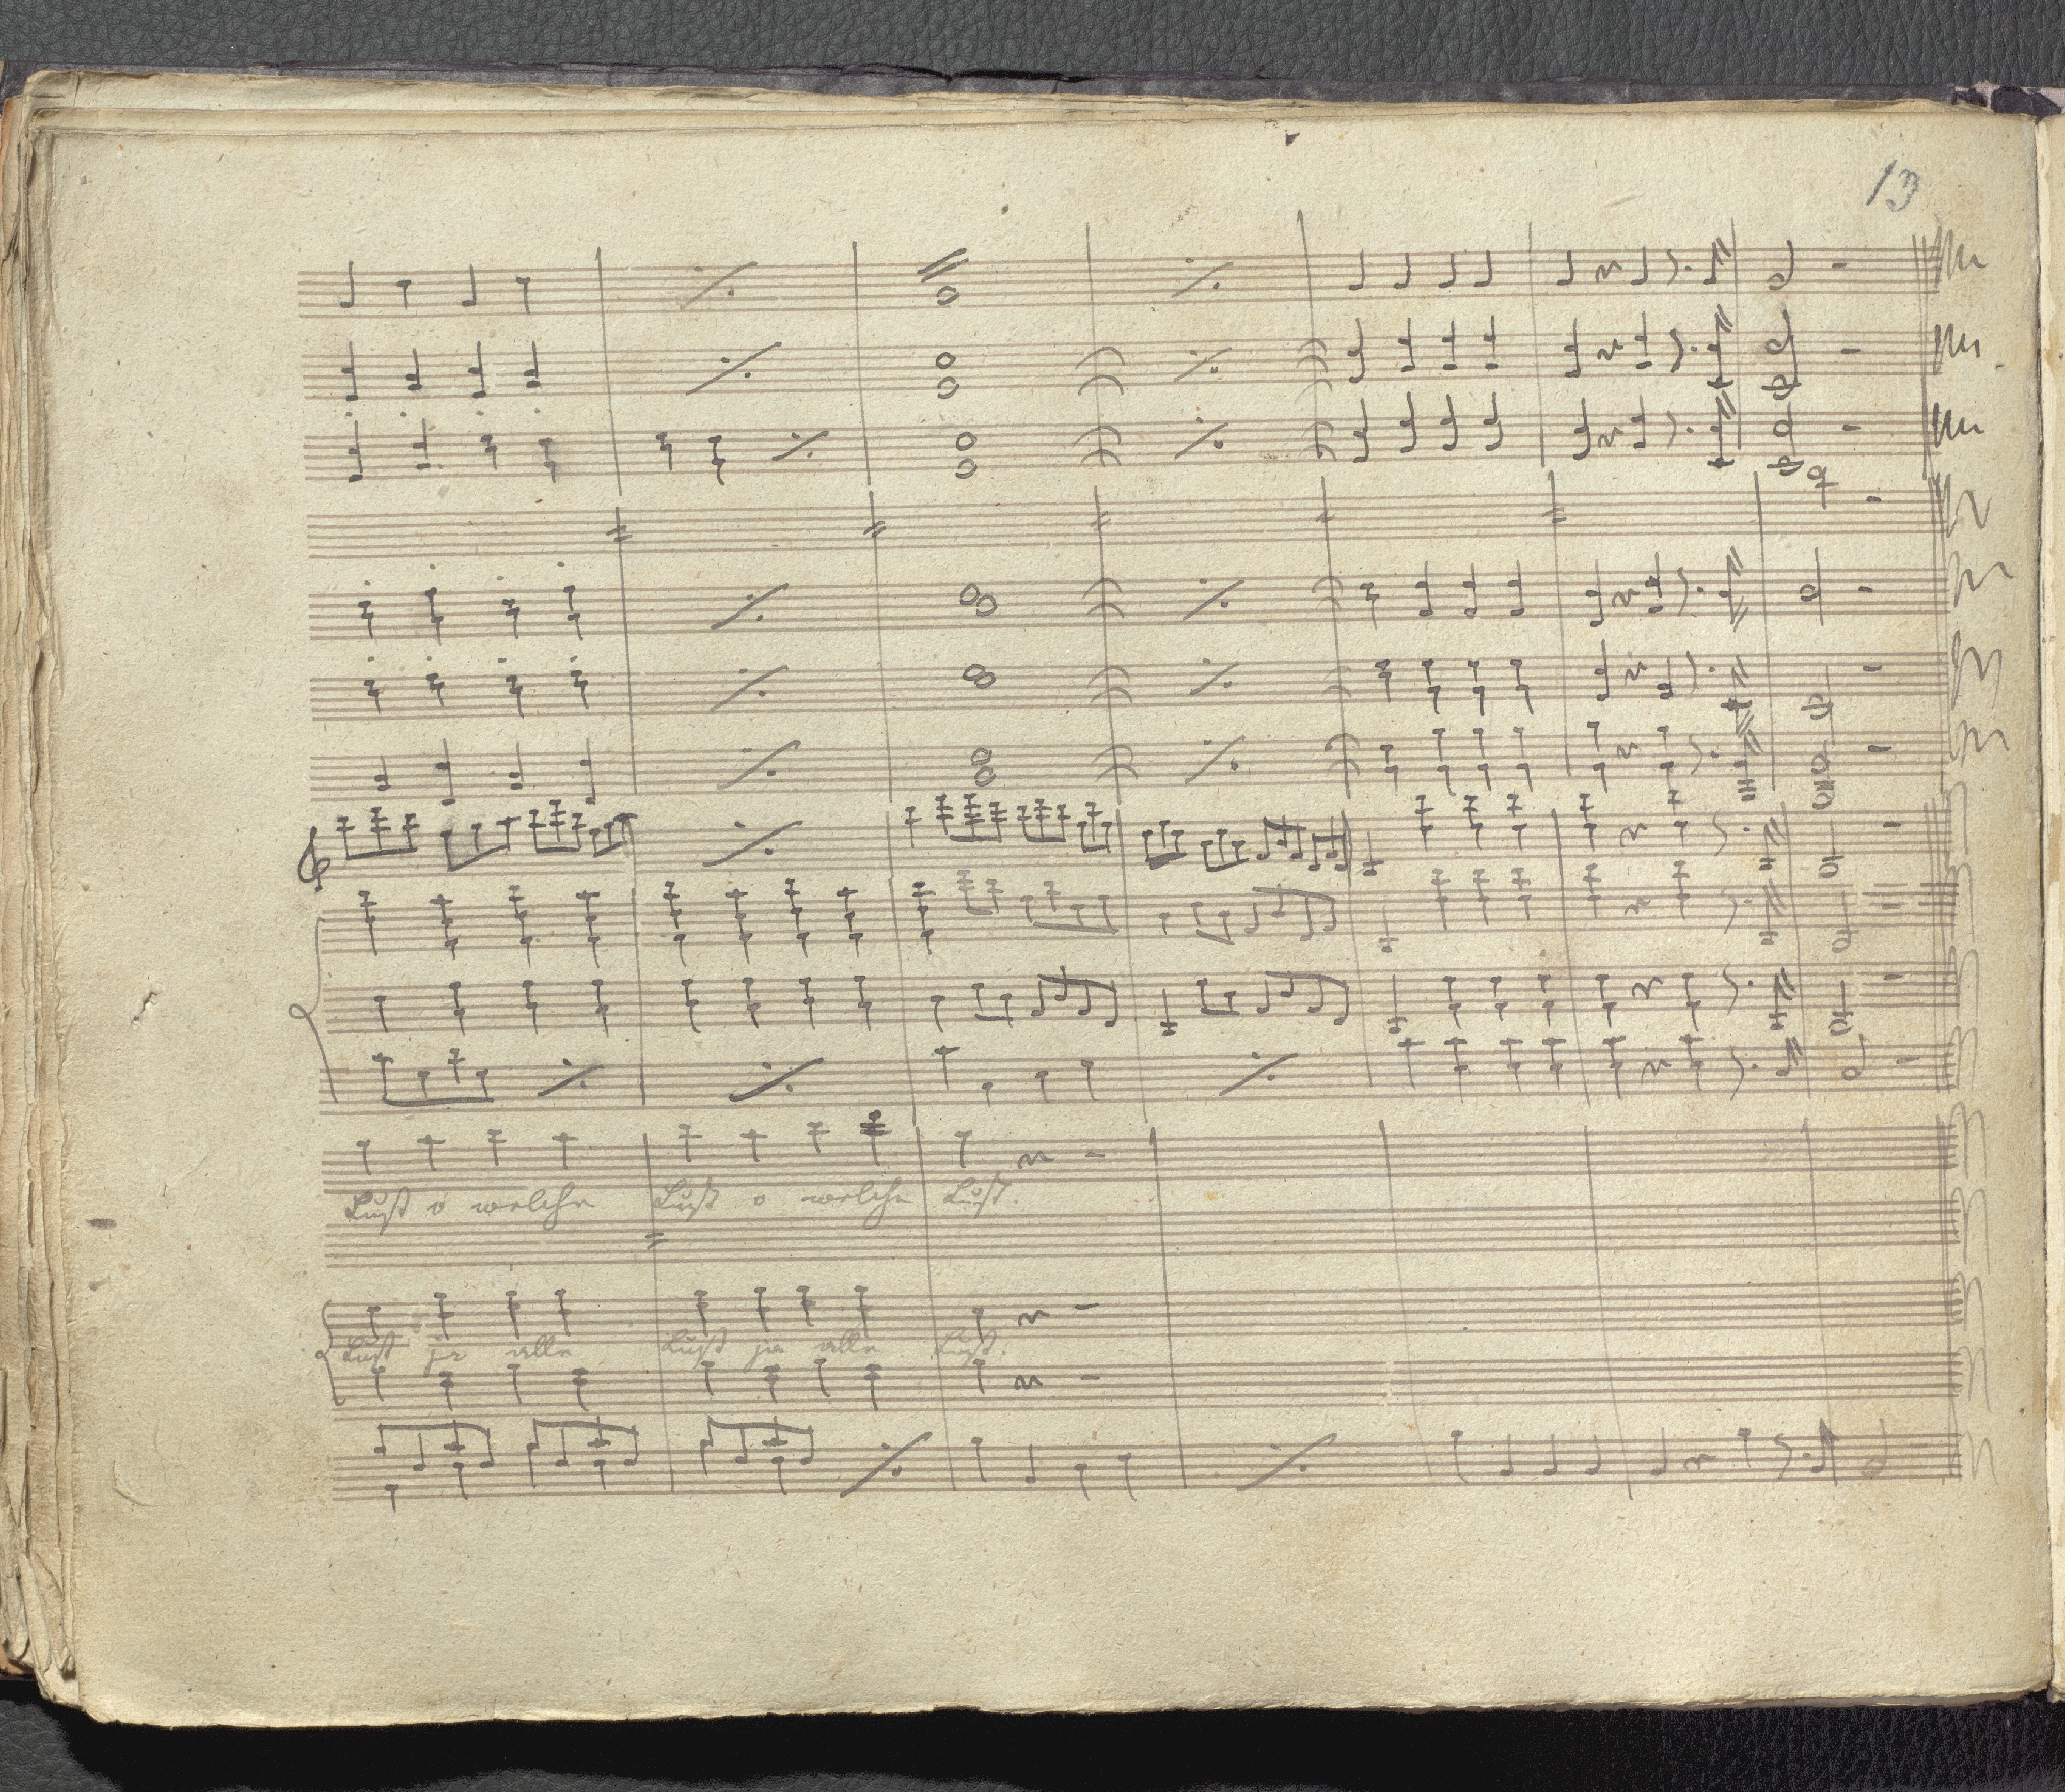 13
Lust o welche Lust o welche Lust.
Lust ja alle Lust ja alle Lust.